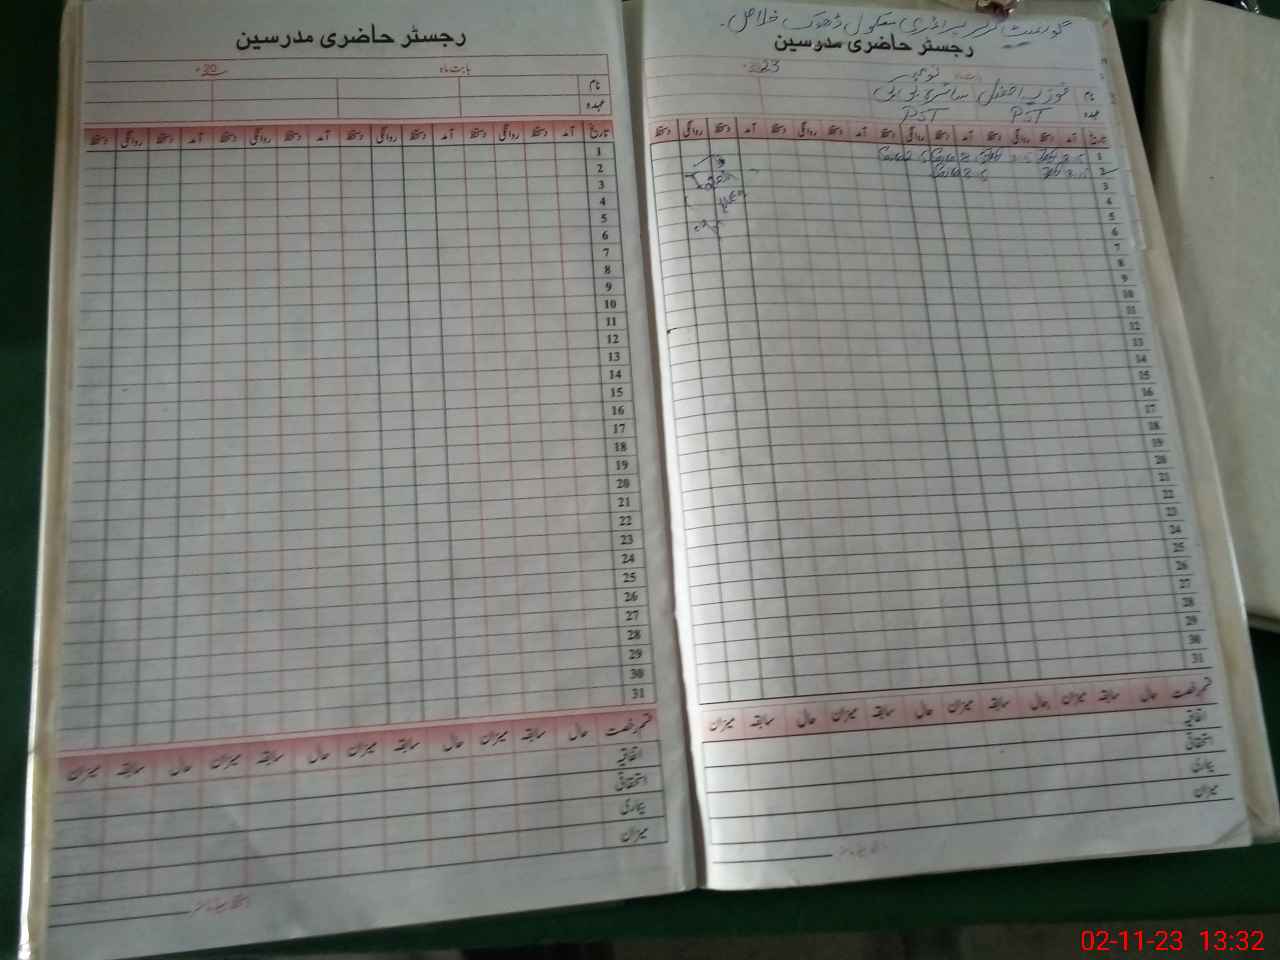 گورنمنٹ گرلز پرائمری سکول ڈھوک
رجسٹر حاضری مدرسین
بابت ماہ نومبر 2023ء
نام فوزیہ افضل سائرہ بی بی
عہدہ PST PST
تاریخ آمد دستخط روانگی دستخط آمد دستخط روانگی دستخط آمد دستخط روانگی دستخط آمد دستخط روانگی دستخط
1
2
3
4
5
6
7
8
9
10
11
12
13
14
15
16
17
18
19
20
21
22
23
24
25
26
27
28
29
30
31
قسم رخصت حال سابقہ میزان حال سابقہ میزان حال سابقہ میزان حال سابقہ میزان
اتفاقیہ
استحقاقی
بیماری
میزان
رجسٹر حاضری مدرسین
بابت ماہ 20ء
نام
عہدہ
تاریخ آمد دستخط روانگی دستخط آمد دستخط روانگی دستخط آمد دستخط روانگی دستخط آمد دستخط روانگی دستخط
1
2
3
4
5
6
7
8
9
10
11
12
13
14
15
16
17
18
19
20
21
22
23
24
25
26
27
28
29
30
31
قسم رخصت حال سابقہ میزان حال سابقہ میزان حال سابقہ میزان حال سابقہ میزان
اتفاقیہ
استحقاقی
بیماری
میزان
02-11-23 13:32